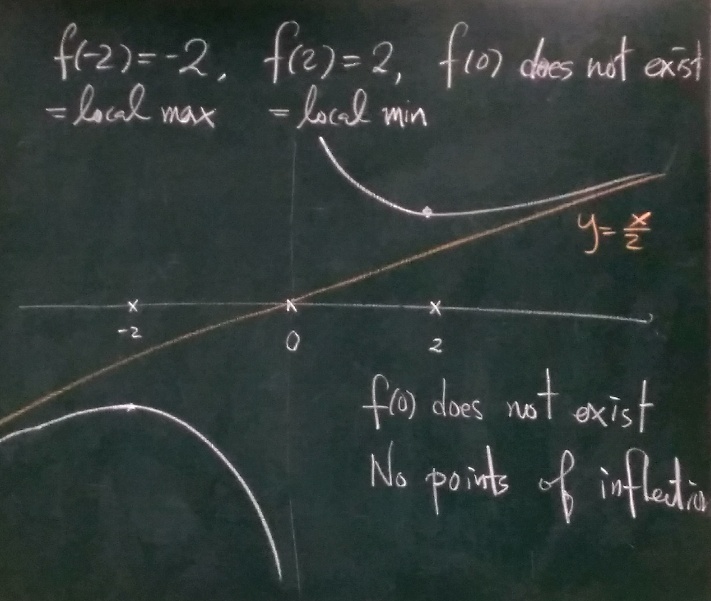 f(-2)=-2, f(2)=2, f(0) does not exist
=local max =local min
y=x/2
-2 0 2
f(0) does not exist
No points of inflectio